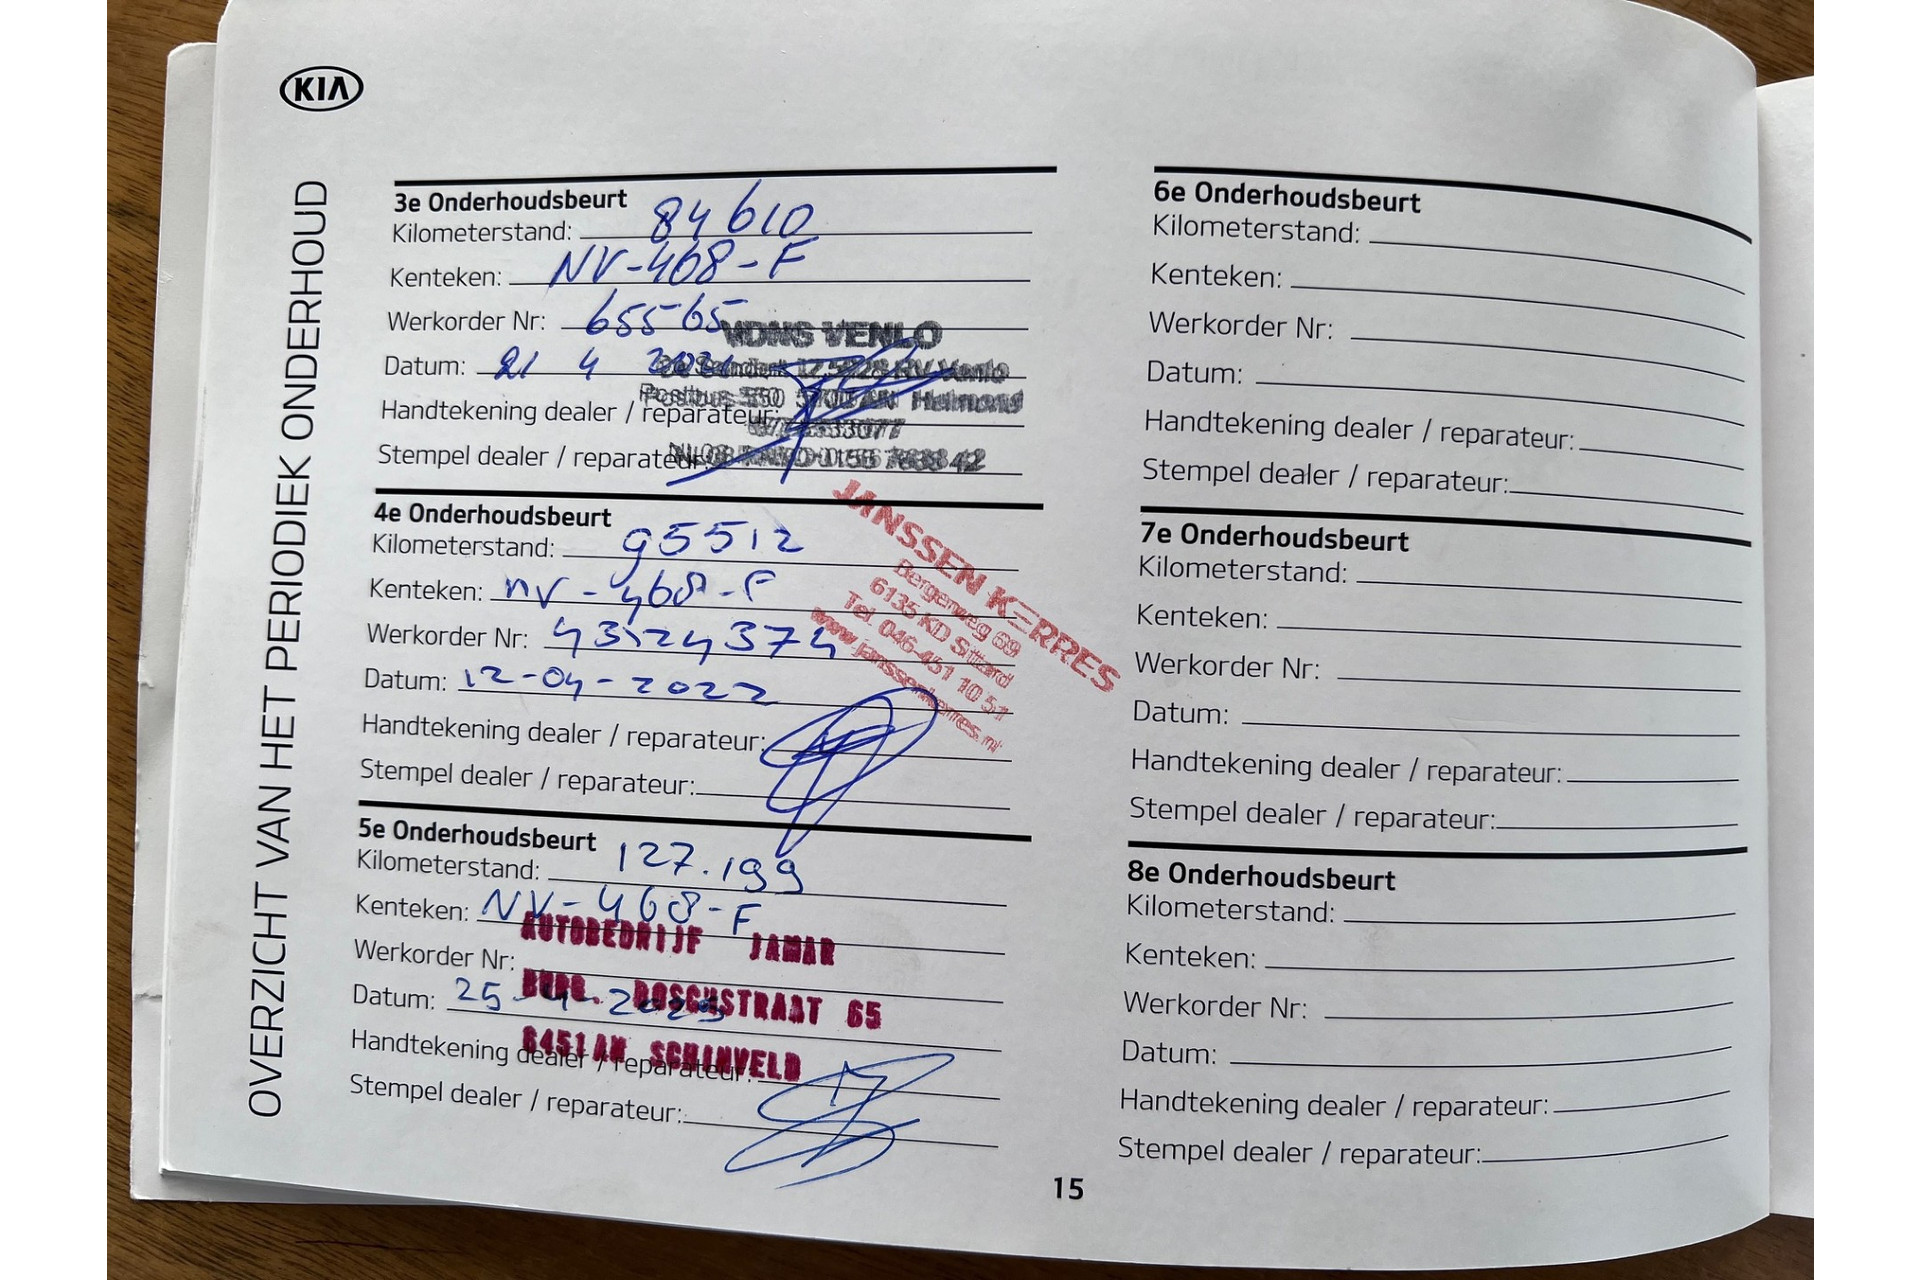 KIA
OVERZICHT VAN HET PERIODIEK ONDERHOUD
3e Onderhoudsbeurt
Kilometerstand: 84610
Kenteken: NV-468-F
Werkorder Nr: 65565
Datum: 21 4
Handtekening dealer / reparateur:
Stempel dealer / reparateur:
VDNS VENLO
Venlo
Postbus 550 5700 AN Helmond
4e Onderhoudsbeurt
Kilometerstand: 95512
Kenteken: NV-468-F
Werkorder Nr: 43124374
Datum: 12-04-2022
Handtekening dealer / reparateur:
Stempel dealer / reparateur:
JANSSEN KERRES
Bergerweg 69
6135 KD Sittard
Tel. 046-451 10 51
www.janssenkerres.nl
5e Onderhoudsbeurt
Kilometerstand: 127.199
Kenteken: NV-468-F
Werkorder Nr:
Datum: 25-4-2023
Handtekening dealer / reparateur:
Stempel dealer / reparateur:
AUTOBEDRIJF JAMAR
BURG. BOSCHSTRAAT 65
6451AN SCHINVELD
6e Onderhoudsbeurt
Kilometerstand:
Kenteken:
Werkorder Nr:
Datum:
Handtekening dealer / reparateur:
Stempel dealer / reparateur:
7e Onderhoudsbeurt
Kilometerstand:
Kenteken:
Werkorder Nr:
Datum:
Handtekening dealer / reparateur:
Stempel dealer / reparateur:
8e Onderhoudsbeurt
Kilometerstand:
Kenteken:
Werkorder Nr:
Datum:
Handtekening dealer / reparateur:
Stempel dealer / reparateur:
15